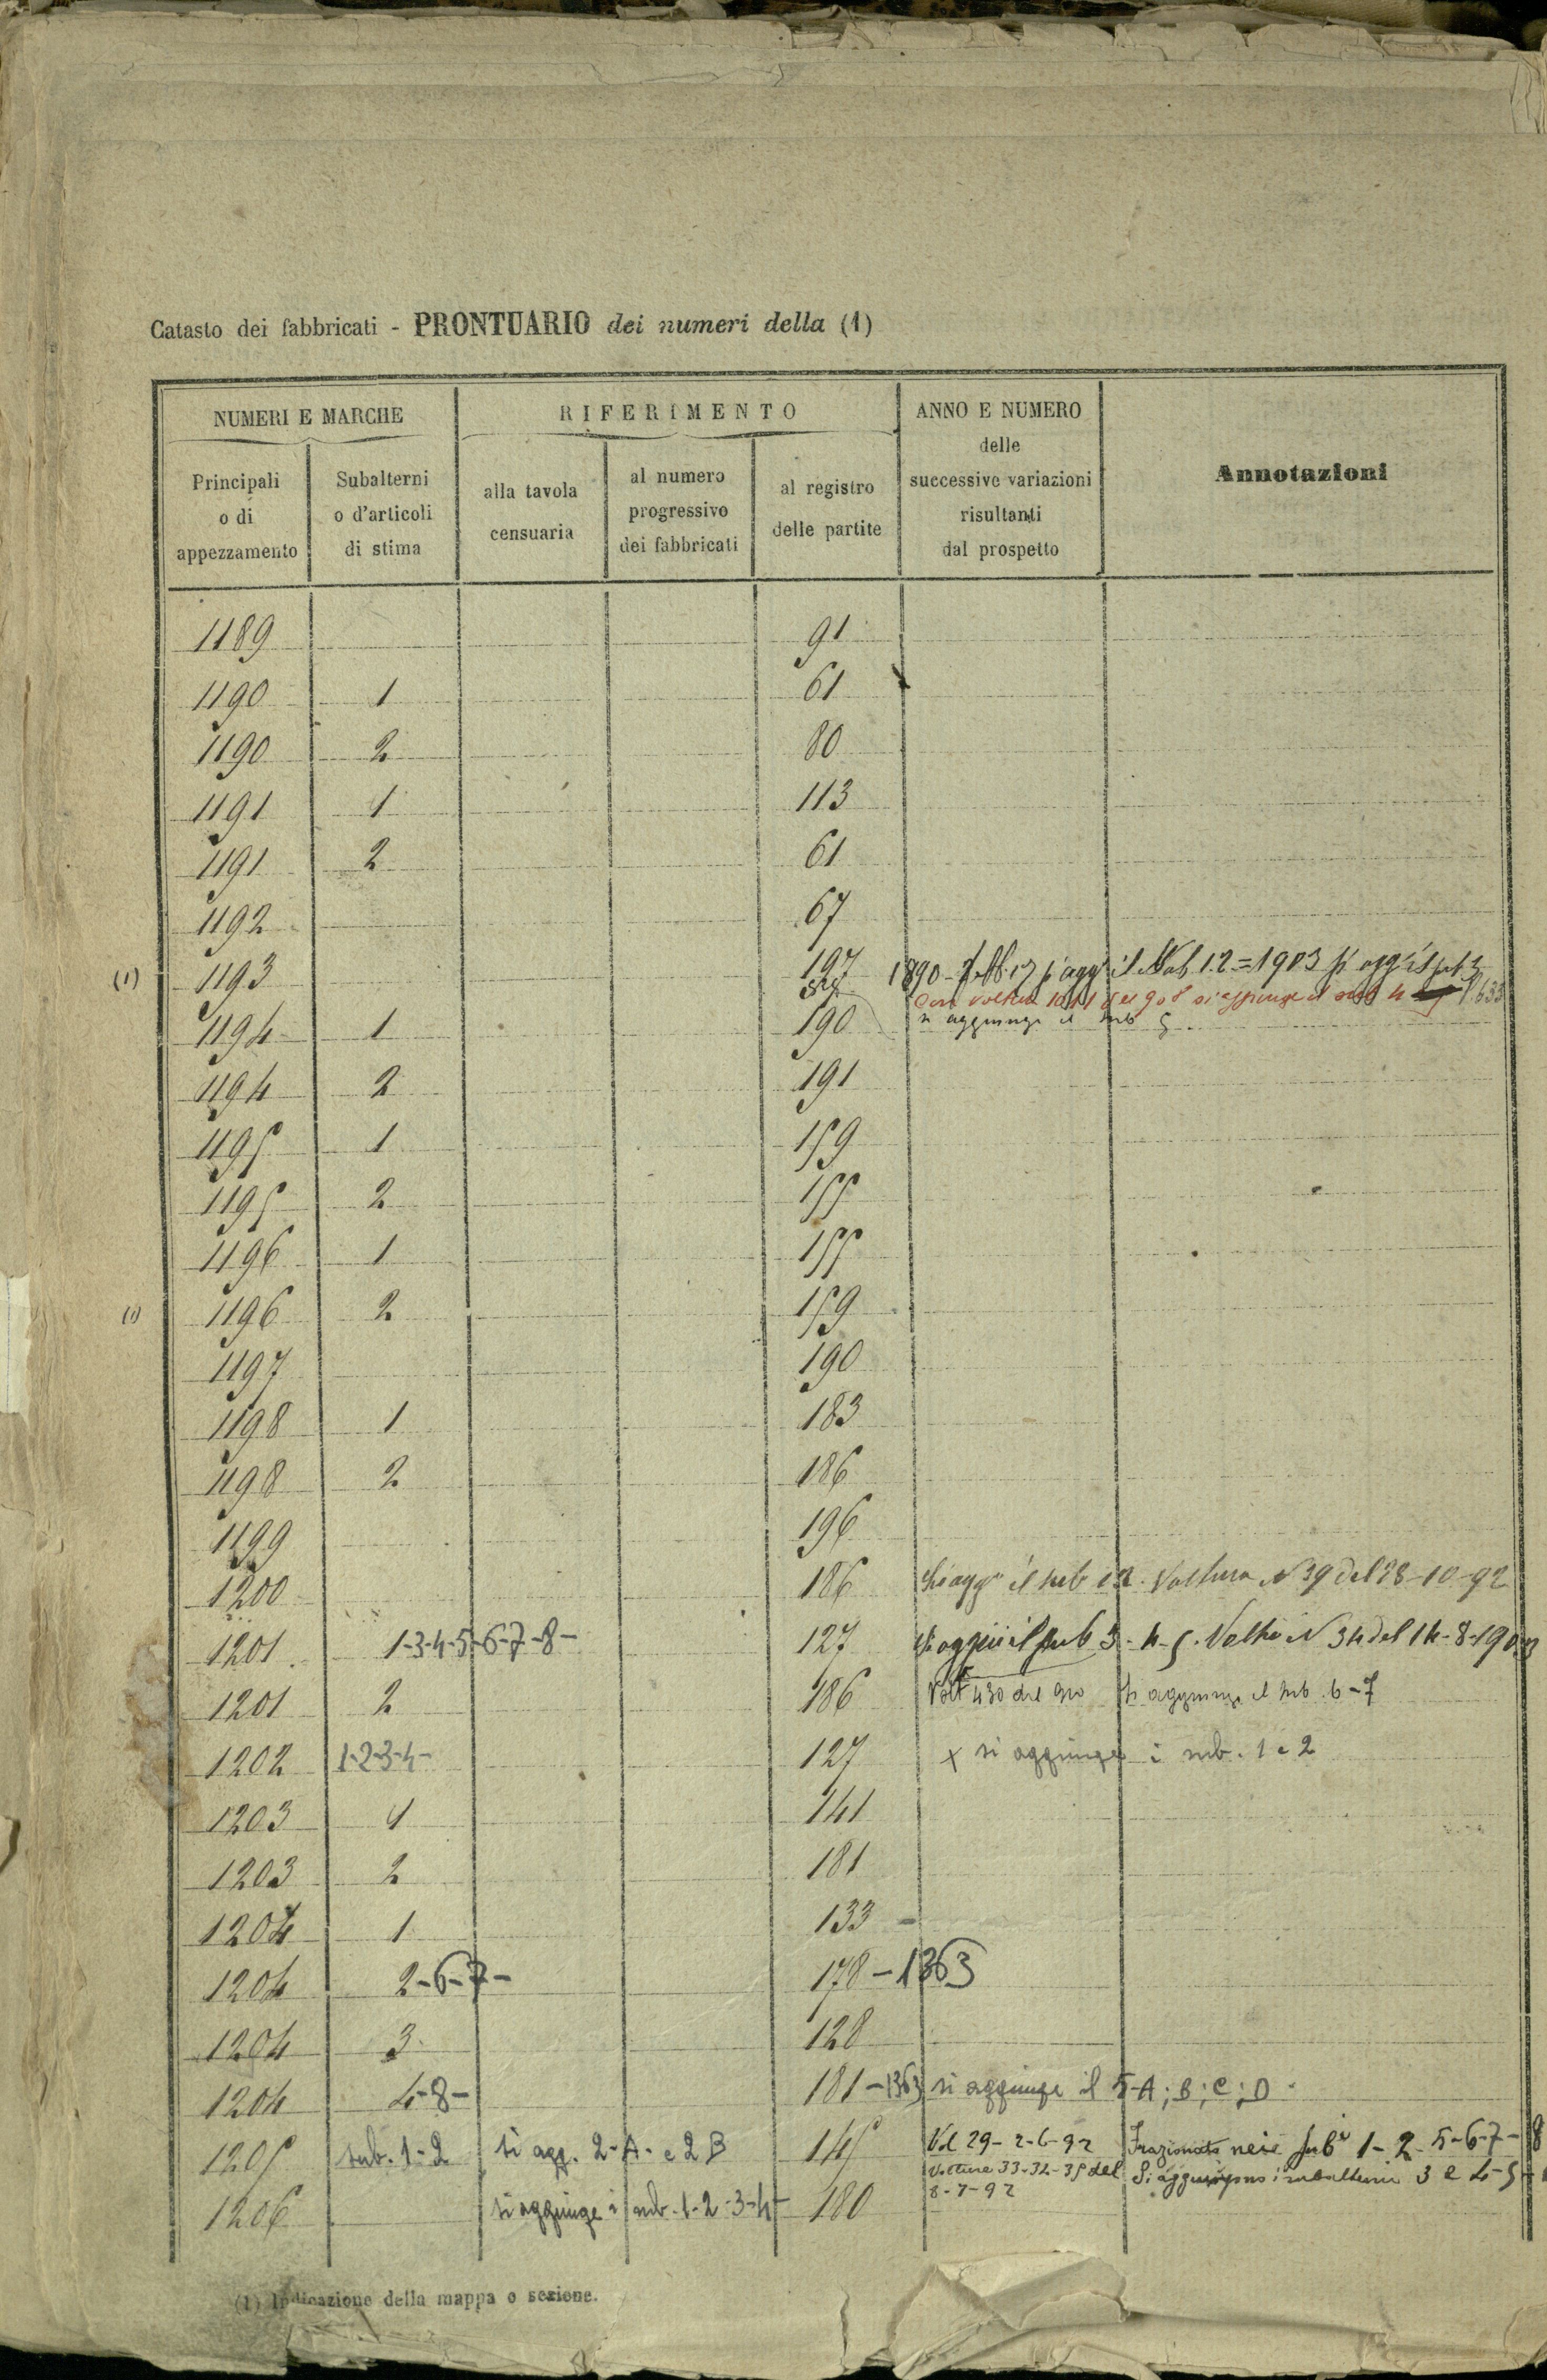 Catasto dei fabbricati - PRONTUARIO dei numeri della (1)
NUMERI E MARCHE
RIFERIMENTO
ANNO E NUMERO
delle
successive variazioni
risultanti
dal prospetto
Annotazioni
Principali
o di
appezzamento
Subalterni
o d'articoli
di stima
alla tavola
censuaria
al numero
progressivo
dei fabbricati
al registro
delle partite
1189 91
1190 1 61
1190 2 80
1191 1 113
1191 2 61
1192 67
(1) 1193 197 1890 il Sub 1.2=1903
si aggiunge il sub 4
1194 1 190 si aggiunge il sub 5
1194 2 191
1195 1 159
1195 2 155
1196 1 155
(1) 1196 2 159
1197 190
1198 1 183
1198 2 186
1199 196
1200 186 il sub 1.2. Voltura N 39 del 28-10-92
1201 1-3-4-5-6-7-8- 127 il sub 3-4-5. N 34 del 14-8-1903
1201 2 186 Volt 430 del 910 Si aggiunge il sub. 6-7
1202 1-2-3-4- 127 x si aggiunge i sub. 1 e 2
1203 1 141
1203 2 181
1204 1 133 -
1204 2-6-7- 178-1363
1204 3 128
1204 4-8- 181-1363 si aggiunge il 5-A; B; C; D.
1205 sub. 1-2 si agg. 2-A- e 2 B 145 Vol 29-2-6-92 Frazionato nei Sub 1-2-5-6-7-8
Volture 33-34-35 del Si aggiungono i subalterni 3 e 4-5-
8-7-92
1206 si aggiunge i sub. 1-2-3-4- 180
(1) Indicazione della mappa o sezione.